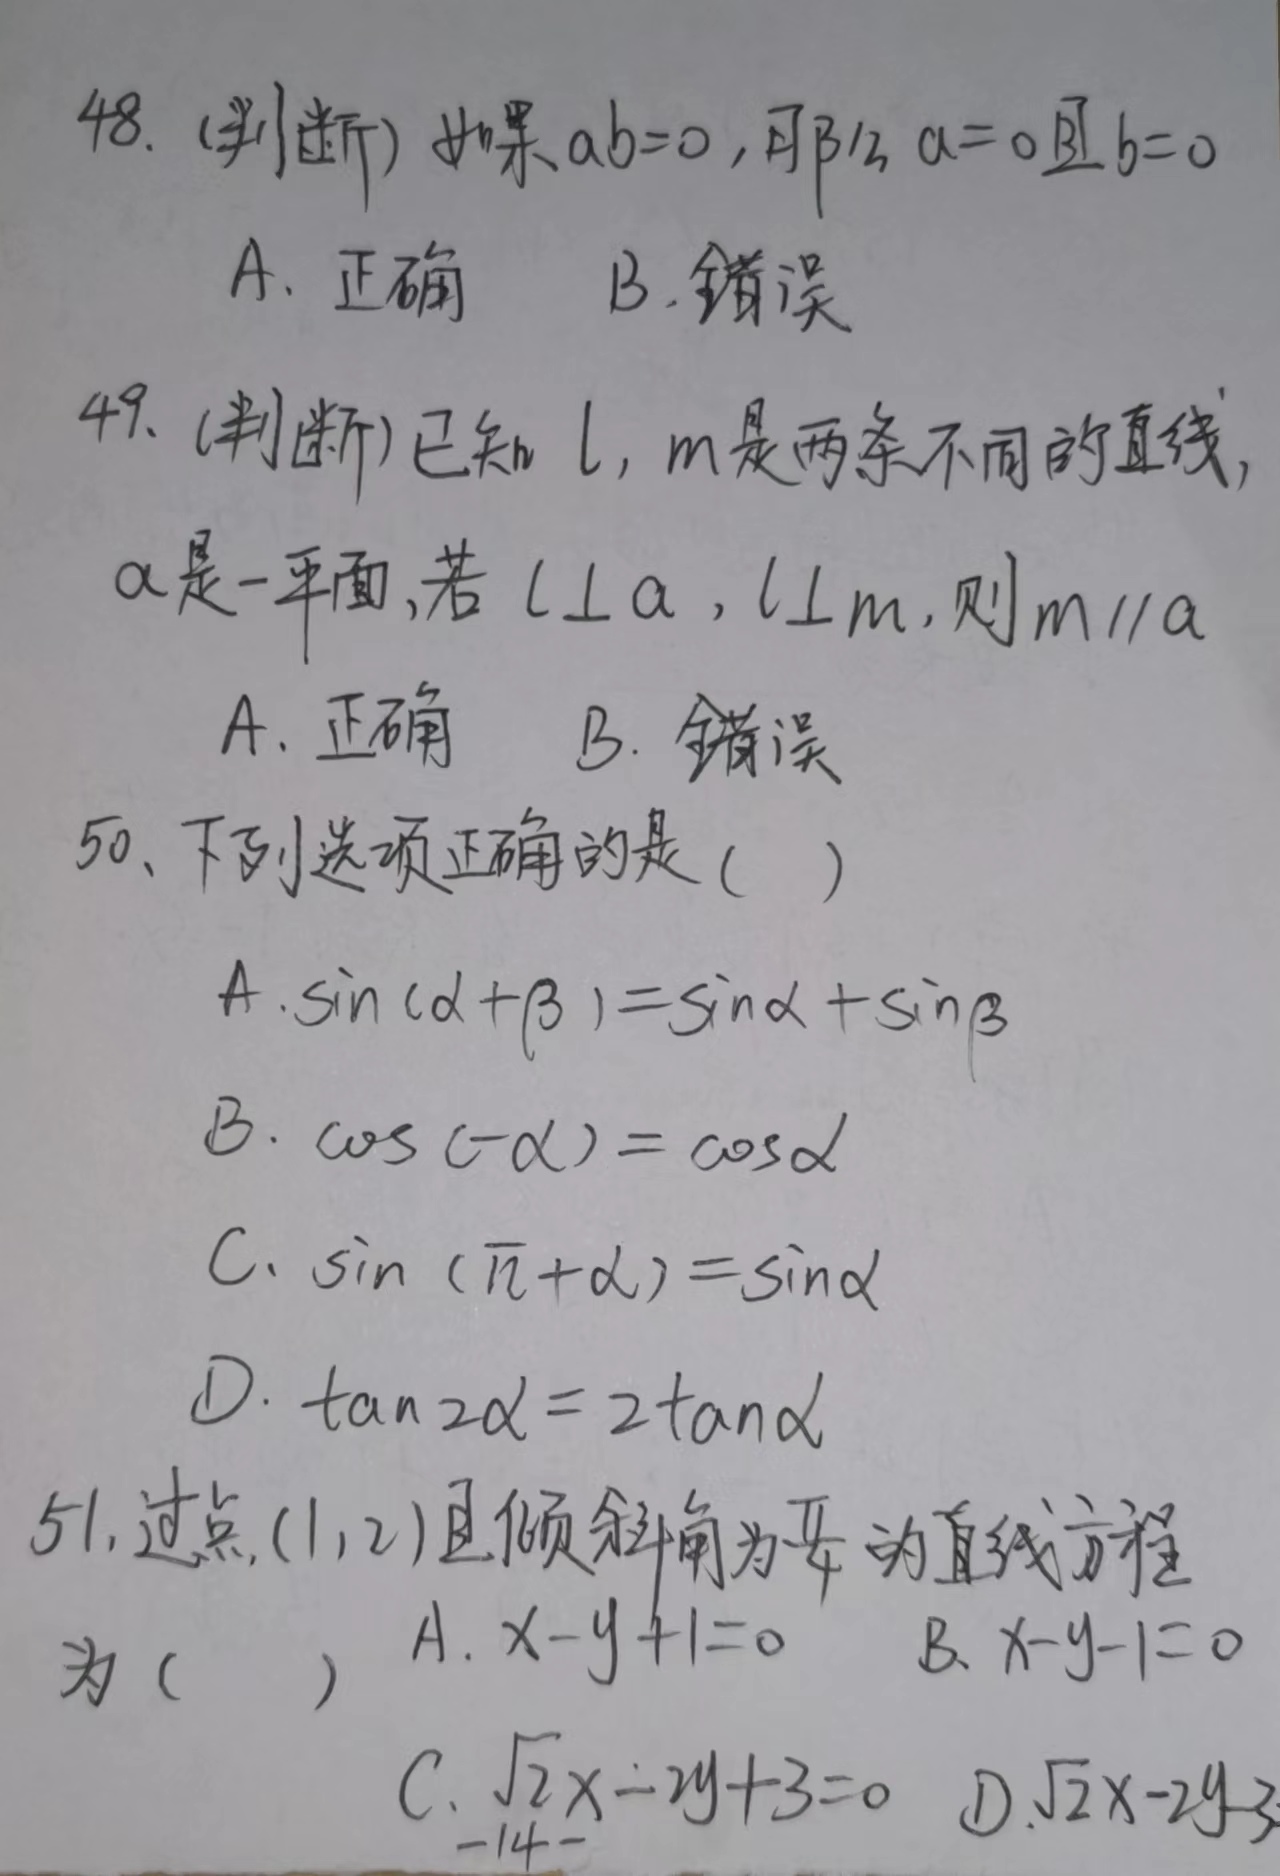 48. (判断) 如果ab=0，那么 a=0且b=0
A. 正确 B. 错误
49. (判断) 已知 l, m是两条不同的直线,
α是一平面, 若 l⊥α, l⊥m, 则 m∥α
A. 正确 B. 错误
50、下列选项正确的是( )
A. sin(α+β)=sinα+sinβ
B. cos(-α)=cosα
C、sin(π+α)=sinα
D. tan2α=2tanα
51. 过点(1,2)且倾斜角为π/4的直线方程
为( ) A. x-y+1=0 B. x-y-1=0
C. √2x-2y+3=0 D. √2x-2y-3
-14-